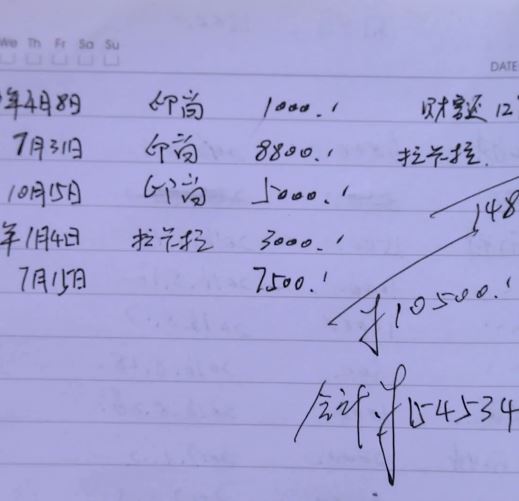 We Th Fr Sa Su
DATE
年4月8日 印尚 1000.! 财富还 12
7月31日 印尚 8800.! 拉卡拉.
10月15日 印尚 5000.!
148
年1月4日 拉卡拉 3000.!
7月15日 7500.!
¥10500.!
合计:¥154534